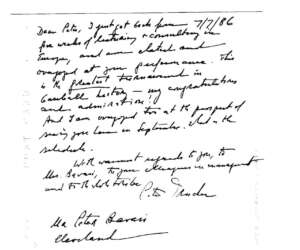 Dear Peter, I just got back from 7/7/86
five weeks of lecturing & consulting in
Europe, and am elated and
overjoyed at your performance. This
is the greatest turnaround in
baseball history — my congratulations
and admiration!
And I am overjoyed too at the prospect of
seeing you here in September. What is the
schedule.
With warmest regards to you, to
Mrs. Bavasi, to your colleagues in management
and to the whole tribe
Peter Drucker
Mr Peter Bavasi
Cleveland